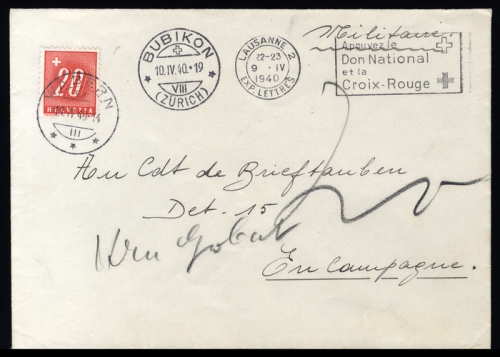 Militaire.
BUBIKON
10.IV.40.-19
VIII
(ZÜRICH)
LAUSANNE 2
22-23
9. IV
1940
EXP. LETTRES
Appuyez le
Don National
et la
Croix-Rouge
20
HELVETIA
III
Au Cdt de Brieftauben
Det. 15
En campagne.